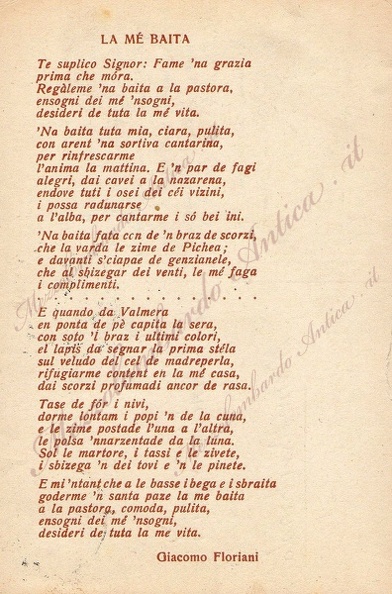 LA MÉ BAITA
Te suplico Signor: Fame 'na grazia
prima che móra.
Regàleme 'na baita a la pastora,
ensogni dei mé 'nsogni,
desideri de tuta la mé vita.
'Na baita tuta mia, ciara, pulita,
con arent 'na sortiva cantarina,
per rinfrescarme
l'anima la mattina. E 'n par de fagi
alegri, dai cavei a la nazarena,
endove tuti i osei dei céi vizini,
i possa radunarse
a l'alba, per cantarme i só bei ini.
'Na baita fata con de 'n braz de scorzi,
che la varda le zime de Pichea;
e davanti s'ciapae de genzianele,
che al sbizegar dei venti, le mé faga
i complimenti.
E quando da Valmera
en ponta de pè capita la sera,
con soto 'l braz i ultimi colori,
el lapis da segnar la prima stéla
sul veludo del cel de madreperla,
rifugiarme content en la mé casa,
dai scorzi profumadi ancor de rasa.
Tase de fór i nivi,
dorme lontam i popi 'n de la cuna,
e le zime postade l'una a l'altra,
le polsa 'nnarzentade da la luna.
Sol le martore, i tassi e le zivete,
i sbizega 'n dei tovi e 'n le pinete.
E mi 'ntant che a le basse i bega e i sbraita
goderme 'n santa paze la me baita
a la pastora, comoda, pulita,
ensogni dei mé 'nsogni,
desideri de tuta la me vita.
Giacomo Floriani
Lombardo Antica . it
Lombardo Antica . it